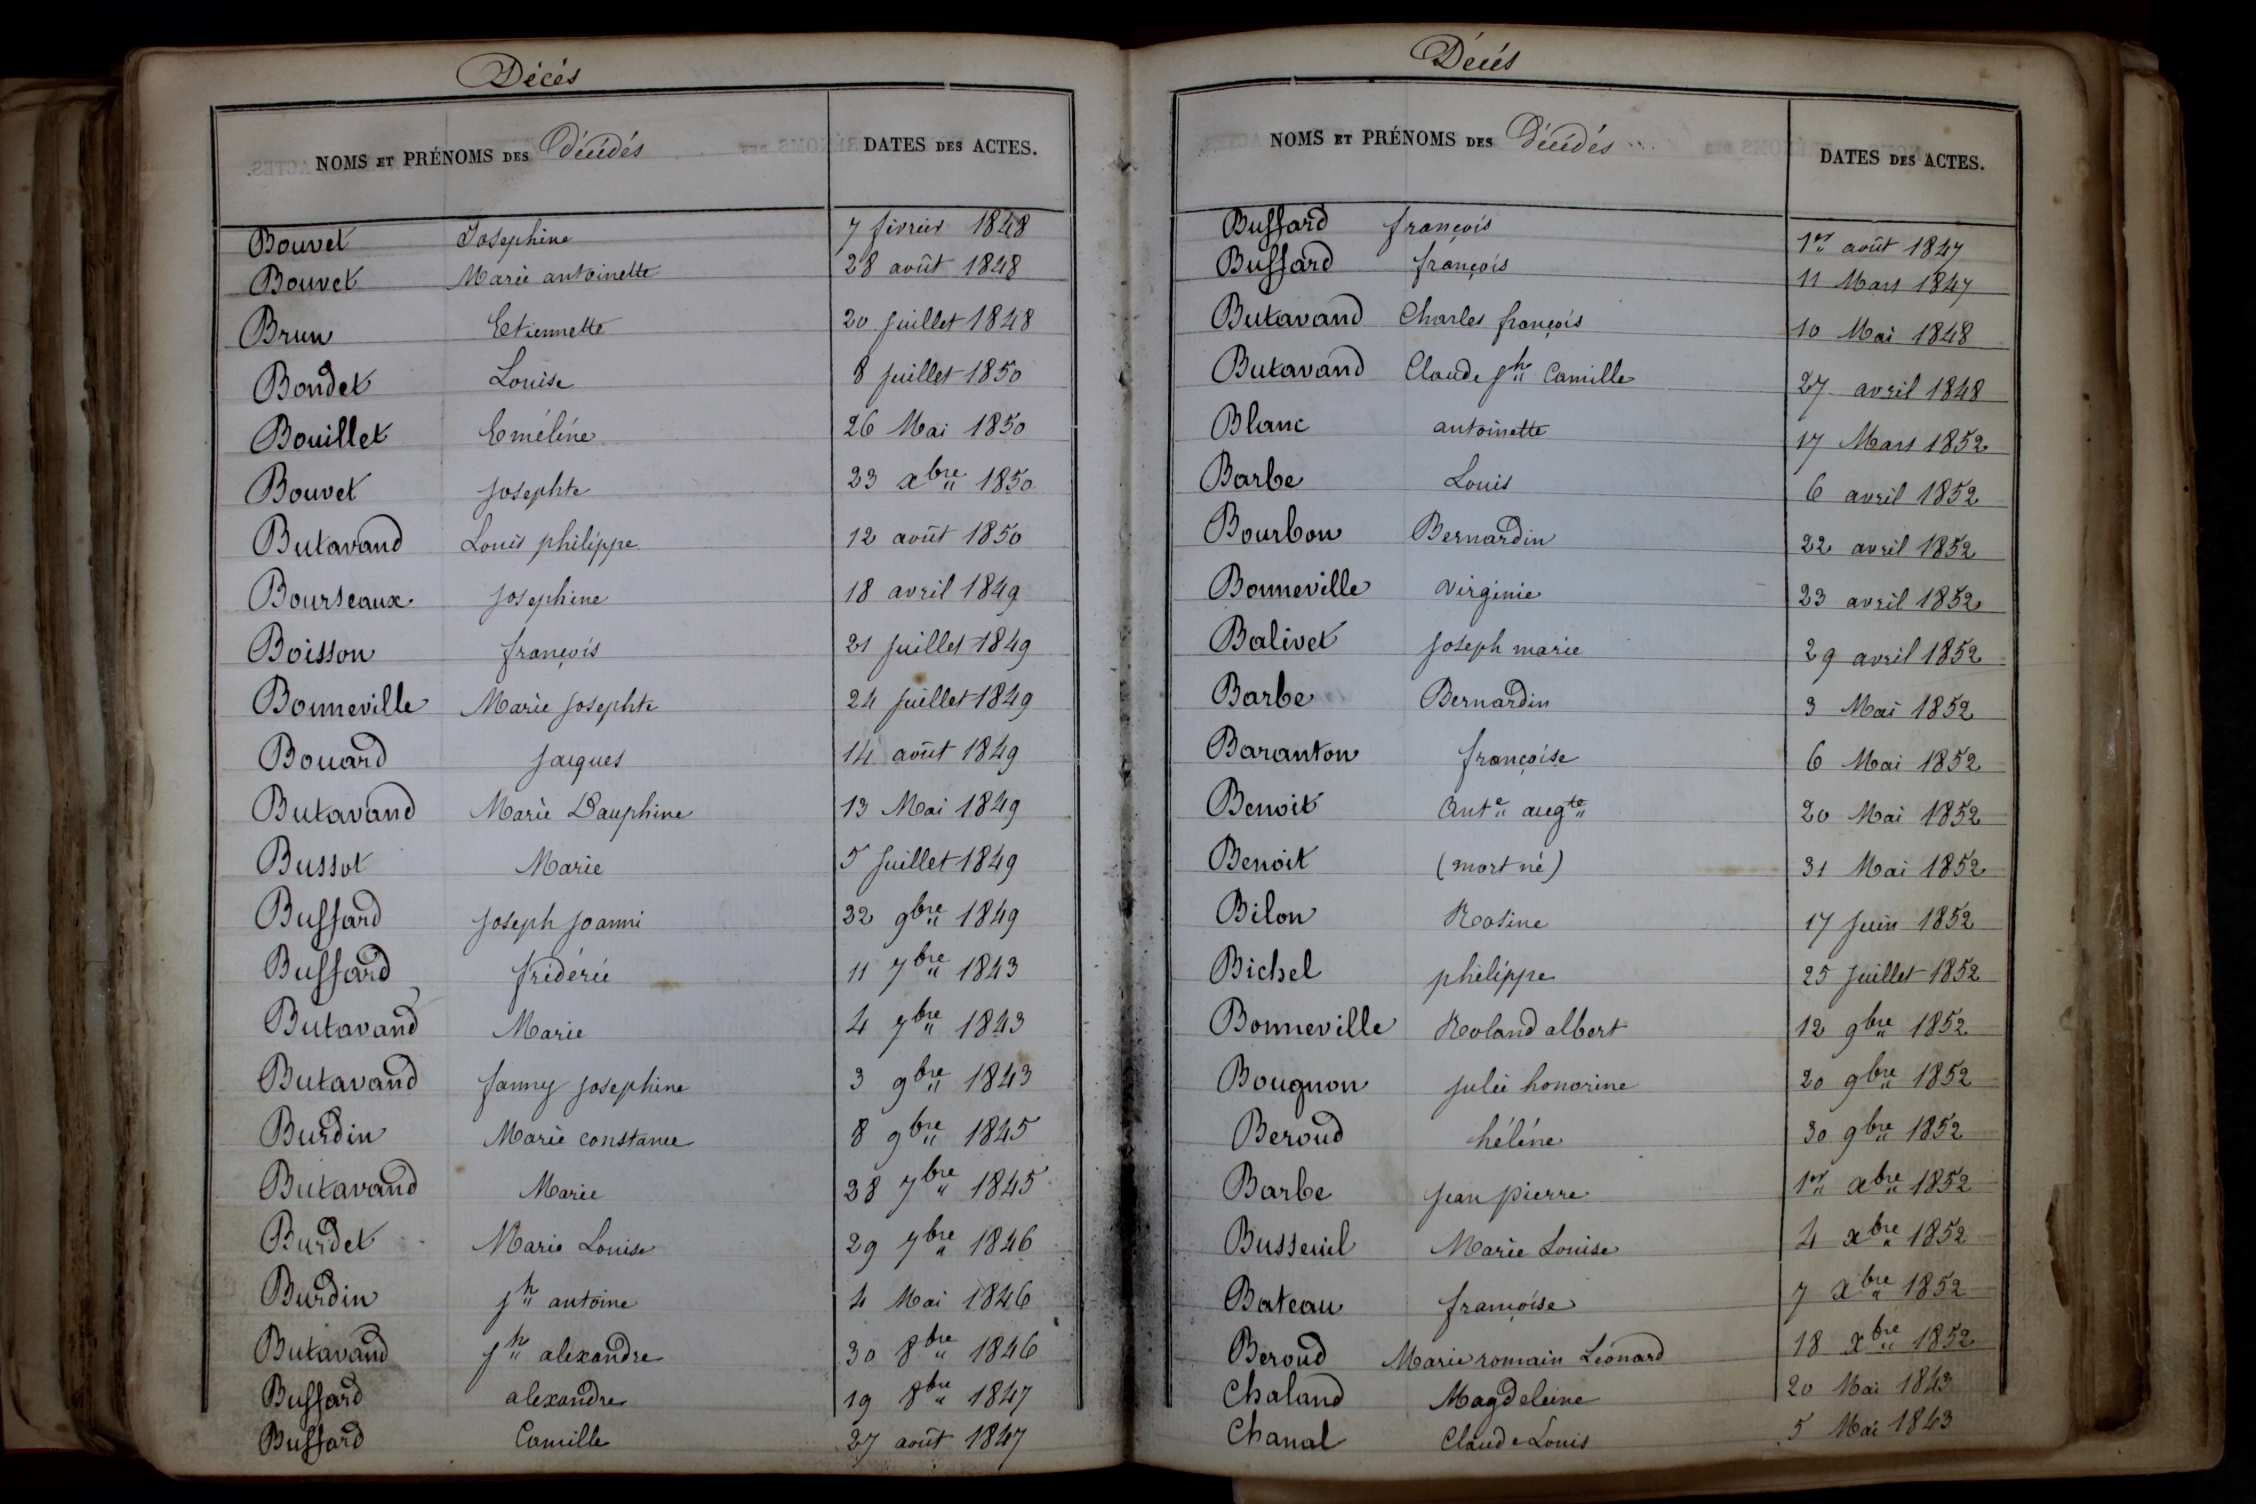 Décés
NOMS ET PRÉNOMS DES Décédés DATES DES ACTES.
Bouvet Josephine 7 février 1848
Bouvet Marie antoinette 28 août 1848
Brun Etiennette 20 juillet 1848
Bondet Louise 8 juillet 1850
Bouillet Eméline 26 Mai 1850
Bouvet Josephte 23 xbre 1850
Butavand Louis philippe 12 août 1850
Bourseaux Josephine 18 avril 1849
Boisson françois 21 juillet 1849
Bonneville Marie Josephte 24 juillet 1849
Bouard Jacques 14 août 1849
Butavand Marie Dauphine 13 Mai 1849
Bussot Marie 5 juillet 1849
Buffard Joseph Joanni 9bre 1849
Buffard frédéric 11 7bre 1843
Butavand Marie 4 7bre 1843
Butavand fanny Josephine 3 9bre 1843
Burdin Marie constance 8 9bre 1845
Butavand Marie 28 7bre 1845
Burdet Marie Louise 29 7bre 1846
Burdin Jh antoine 4 Mai 1846
Butavand Jh alexandre 30 8bre 1846
Buffard alexandre 19 8bre 1847
Buffard Camille 27 août 1847
Décés
NOMS ET PRÉNOMS DES Décédés DATES DES ACTES.
Buffard françois 1er août 1847
Buffard françois 11 Mars 1847
Butavand Charles françois 10 Mai 1848
Butavand Claude Jh Camille 27 avril 1848
Blanc antoinette 17 Mars 1852
Barbe Louis 6 avril 1852
Bourbon Bernardin 22 avril 1852
Bonneville virginie 23 avril 1852
Balivet Joseph marie 29 avril 1852
Barbe Bernardin 3 Mai 1852
Baranton françoise 6 Mai 1852
Benoit Ante augte 20 Mai 1852
Benoit (mort né) 31 Mai 1852
Bilon Rosine 17 juin 1852
Bichel philippe 25 juillet 1852
Bonneville Roland albert 12 9bre 1852
Bougnon julie honorine 20 9bre 1852
Beroud héléne 30 9bre 1852
Barbe jean pierre 1er xbre 1852
Busseuil Marie Louise 4 xbre 1852
Bateau françoise 7 xbre 1852
Beroud Marie romain Léonard 18 xbre 1852
Chaland Magdeleine 20 Mai 1843
Chanal Claude Louis 5 Mai 1843